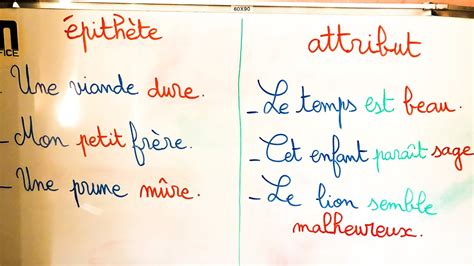 60X90
FICE
épithète
Une viande dure.
- Mon petit frère.
- Une prune mûre.
attribut
- Le temps est beau.
- Cet enfant paraît sage
- Le lion semble
malheureux.